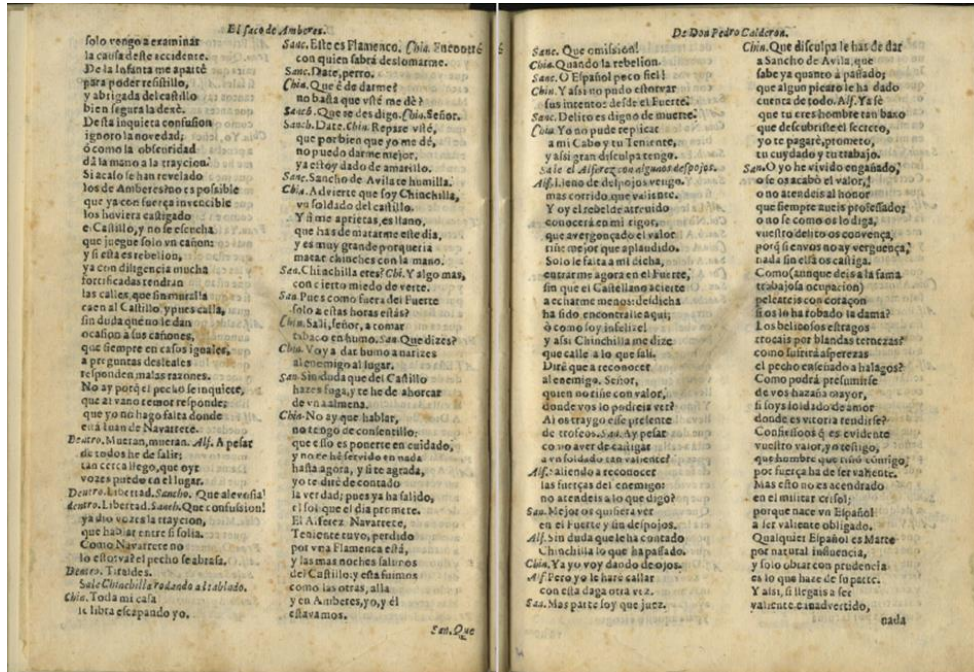 El saco de Amberes.
solo vengo a examinar
la causa deste accidente.
De la Infanta me aparté
para poder resistillo,
y abrigada del castillo
bien segura la dexè.
Desta inquieta confusion
ignoro la novedad;
ó como la obscuridad
dá la mano a la traycion.
Si acaso se han revelado
los de Amberes? no es possible
que ya con fuerça invencible
los hoviera castigado
el Castillo, y no se escucha
que juegue solo vn cañon:
y si esta es rebelion,
ya con diligencia mucha
fortificadas tendran
las calles, que sin muralla
caen al Castillo. y pues calla,
sin duda que no le dan
ocasion a sus cañones,
que siempre en casos iguales,
a preguntas desleales
responden malas razones.
No ay porq̃ el pecho se inquiete,
que al vano temor responde;
que yo no hago falta donde
està Iuan de Navarrete.
Dentro. Mueran, mueran. Alf. A pesar
de todos he de salir;
tan cerca llego, que oyr
vozes puedo en el lugar.
Dentro. Libertad. Sancho. Que alevosia!
dentro. Libertad. Sanch. Que confusion!
ya dio vozes la traycion,
que hablar entre si solia.
Como Navarrete no
lo estorva? el pecho se abrasa.
Dentro. Tiraldes.
Sale Chinchilla rodando al tablado.
Chin. Toda mi casa
se libra escapando yo.
Sanc. Este es Flamenco. Chin. Encontré
con quien sabrà deslomarme.
Sanc. Date, perro.
Chin. Que è de darme?
no basta que vsté me dè?
Sanch. Que se des digo. Chin. Señor.
Sanch. Date. Chin. Repare vsté,
que por bien que yo me dé,
no puedo darme mejor,
ya estoy dado de amarillo.
Sanc. Sancho de Avila te humilla.
Chin. Advierte que soy Chinchilla,
vn soldado del castillo.
Y si me aprietas, es llano,
que has de matarme este dia,
y es muy grande porqueria
matar chinches con la mano.
San. Chinchilla eres? Chi. Y algo mas,
con cierto miedo de verte.
San. Pues como fuera del Fuerte
solo a estas horas estás?
Chin. Sali, señor, a tomar
tabaco en humo. San. Que dizes?
Chin. Voy a dar humo a narizes
al enemigo al lugar.
San. Sin duda que del Castillo
hazes fuga, y te he de ahorcar
de vna almena.
Chin. No ay que hablar,
no tengo de consentillo:
que esso es ponerte en cuidado,
y no te hè servido en nada
hasta agora, y si te agrada,
yo te diré de contado
la verdad; pues ya ha salido,
el sol que el dia promete.
El Alferez Navarrete,
Teniente tuvo, perdido
por vna Flamenca está,
y las mas noches salimos
del Castillo; y esta fuimos
como las otras, alla
y en Amberes, yo, y él
estavamos.
San. Que
De Don Pedro Calderon.
Sanc. Que omision!
Chin. Quando la rebelion.
Sanc. O Español poco fiel!
Chin. Y assi no pudo estorvar
sus intentos desde el Fuerte.
Sanc. Delito es digno de muerte.
Chin. Yo no pude replicar
a mi Cabo y tu Teniente,
y assi gran disculpa tengo.
Sale el Alferez con algunos despojos.
Alf. Lleno de despojos vengo.
mas corrido, que valiente.
Y oy el rebelde atrevido
conocerá en mi rigor,
que avergonçado el valor
riñe mejor que aplaudido.
Solo le falta a mi dicha,
entrarme agora en el Fuerte,
sin que el Castellano acierte
a echarme menos: desdicha
ha sido encontralle aqui;
ò como soy infelize!
y assi Chinchilla me dize
que calle a lo que sali.
Dirà que a reconocer
al enemigo. Señor,
quien no riñe con valor,
donde vos lo podeis ver?
Ai os traygo esse presente
de trofeos. San. Ay pesar
como aver de castigar
a vn soldado tan valiente!
Alf. Saliendo a reconocer
las fuerças del enemigo:
no atendeis a lo que digo?
San. Mejor os quisiera ver
en el Fuerte y sin despojos.
Alf. Sin duda que le ha contado
Chinchilla lo que ha pasado.
Chin. Ya yo voy dando de ojos.
Alf. Pero yo le haré callar
con esta daga otra vez.
San. Mas parte soy que juez.
Chin. Que disculpa le has de dar
a Sancho de Avila, que
sabe ya quanto à passado;
que algun picaro le ha dado
cuenta de todo. Alf. Ya sé
que tu eres hombre tan baxo
que descubriste el secreto,
yo te pagaré, prometo,
tu cuydado y tu trabajo.
San. O yo he vivido engañado,
o se os acabó el valor,
o no atendeis al honor
que siempre aueis professado;
o no se como os lo diga,
vuestro delito os convença,
porq̃ si en vos no ay verguença,
nada sin ella os castiga.
Como (aunque deis a la fama
trabajosa ocupacion)
peleareis con coraçon
si os lo ha robado la dama?
Los belicosos estragos
trocais por blandas ternezas?
como sufrirá asperezas
el pecho enseñado a halagos?
Como podrá presumirse
de vos hazaña mayor,
si soys soldado de amor
donde es vitoria rendirse?
Confiessoos q̃ es evidente
vuestro valor, yo testigo,
que hombre que riñó comigo,
por fuerça ha de ser valiente.
Mas esto no es acendrado
en el militar crisol;
porque nace vn Español
a ser valiente obligado.
Qualquier Español es Marte
por natural influencia,
y solo obrar con prudencia
es lo que haze de su parte.
Y assi, si llegais a ser
valiente e inadvertido,
nada